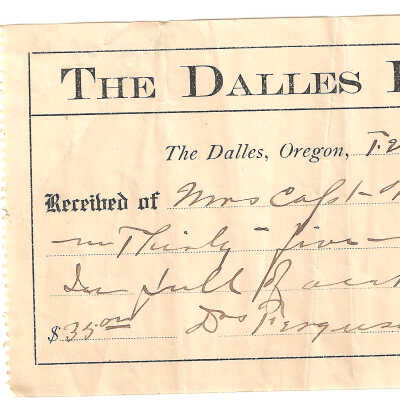 THE DALLES
The Dalles, Oregon,
Received of Mrs Capt
Thirty-five
In full of acct
$35.00 Drs Ferguson